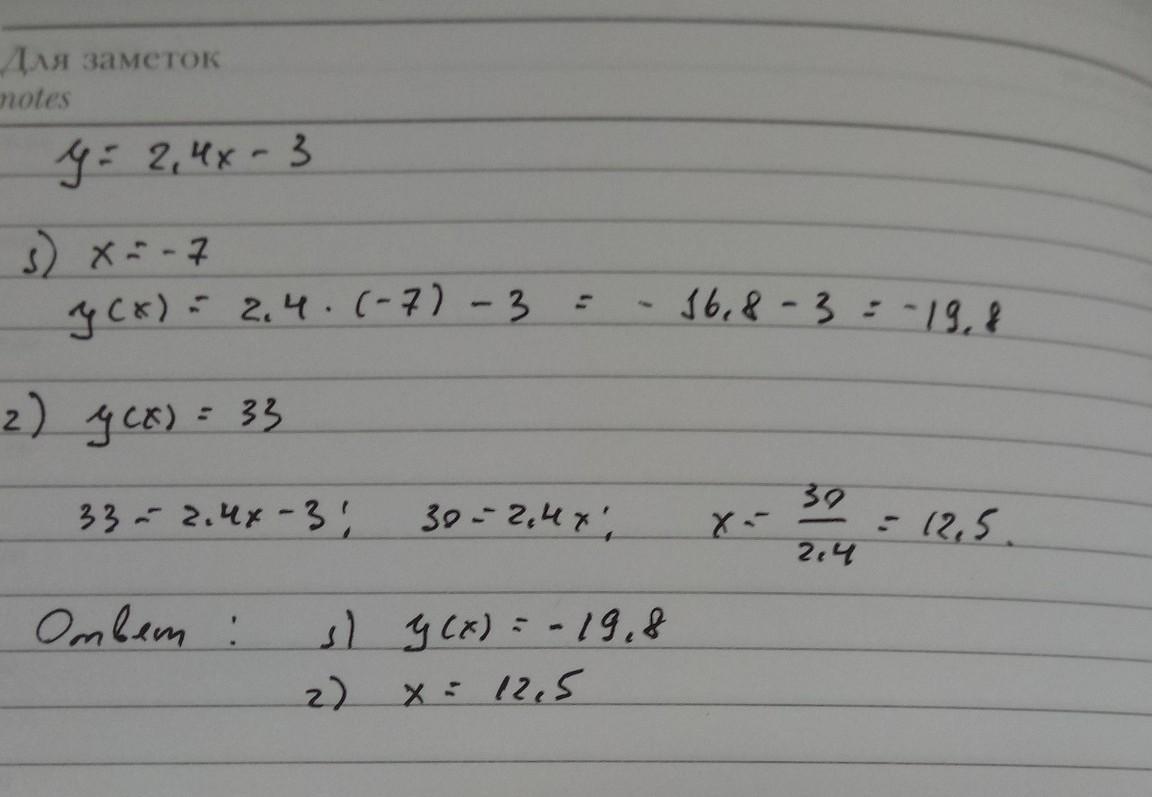 Для заметок
notes
y = 2,4x - 3
1) x = -7
y(x) = 2.4 · (-7) - 3 = - 16,8 - 3 = -19,8
2) y(x) = 33
33 = 2.4x - 3; 30 = 2,4x; x = 30/2.4 = 12,5.
Ответ : 1) y(x) = -19,8
2) x = 12,5